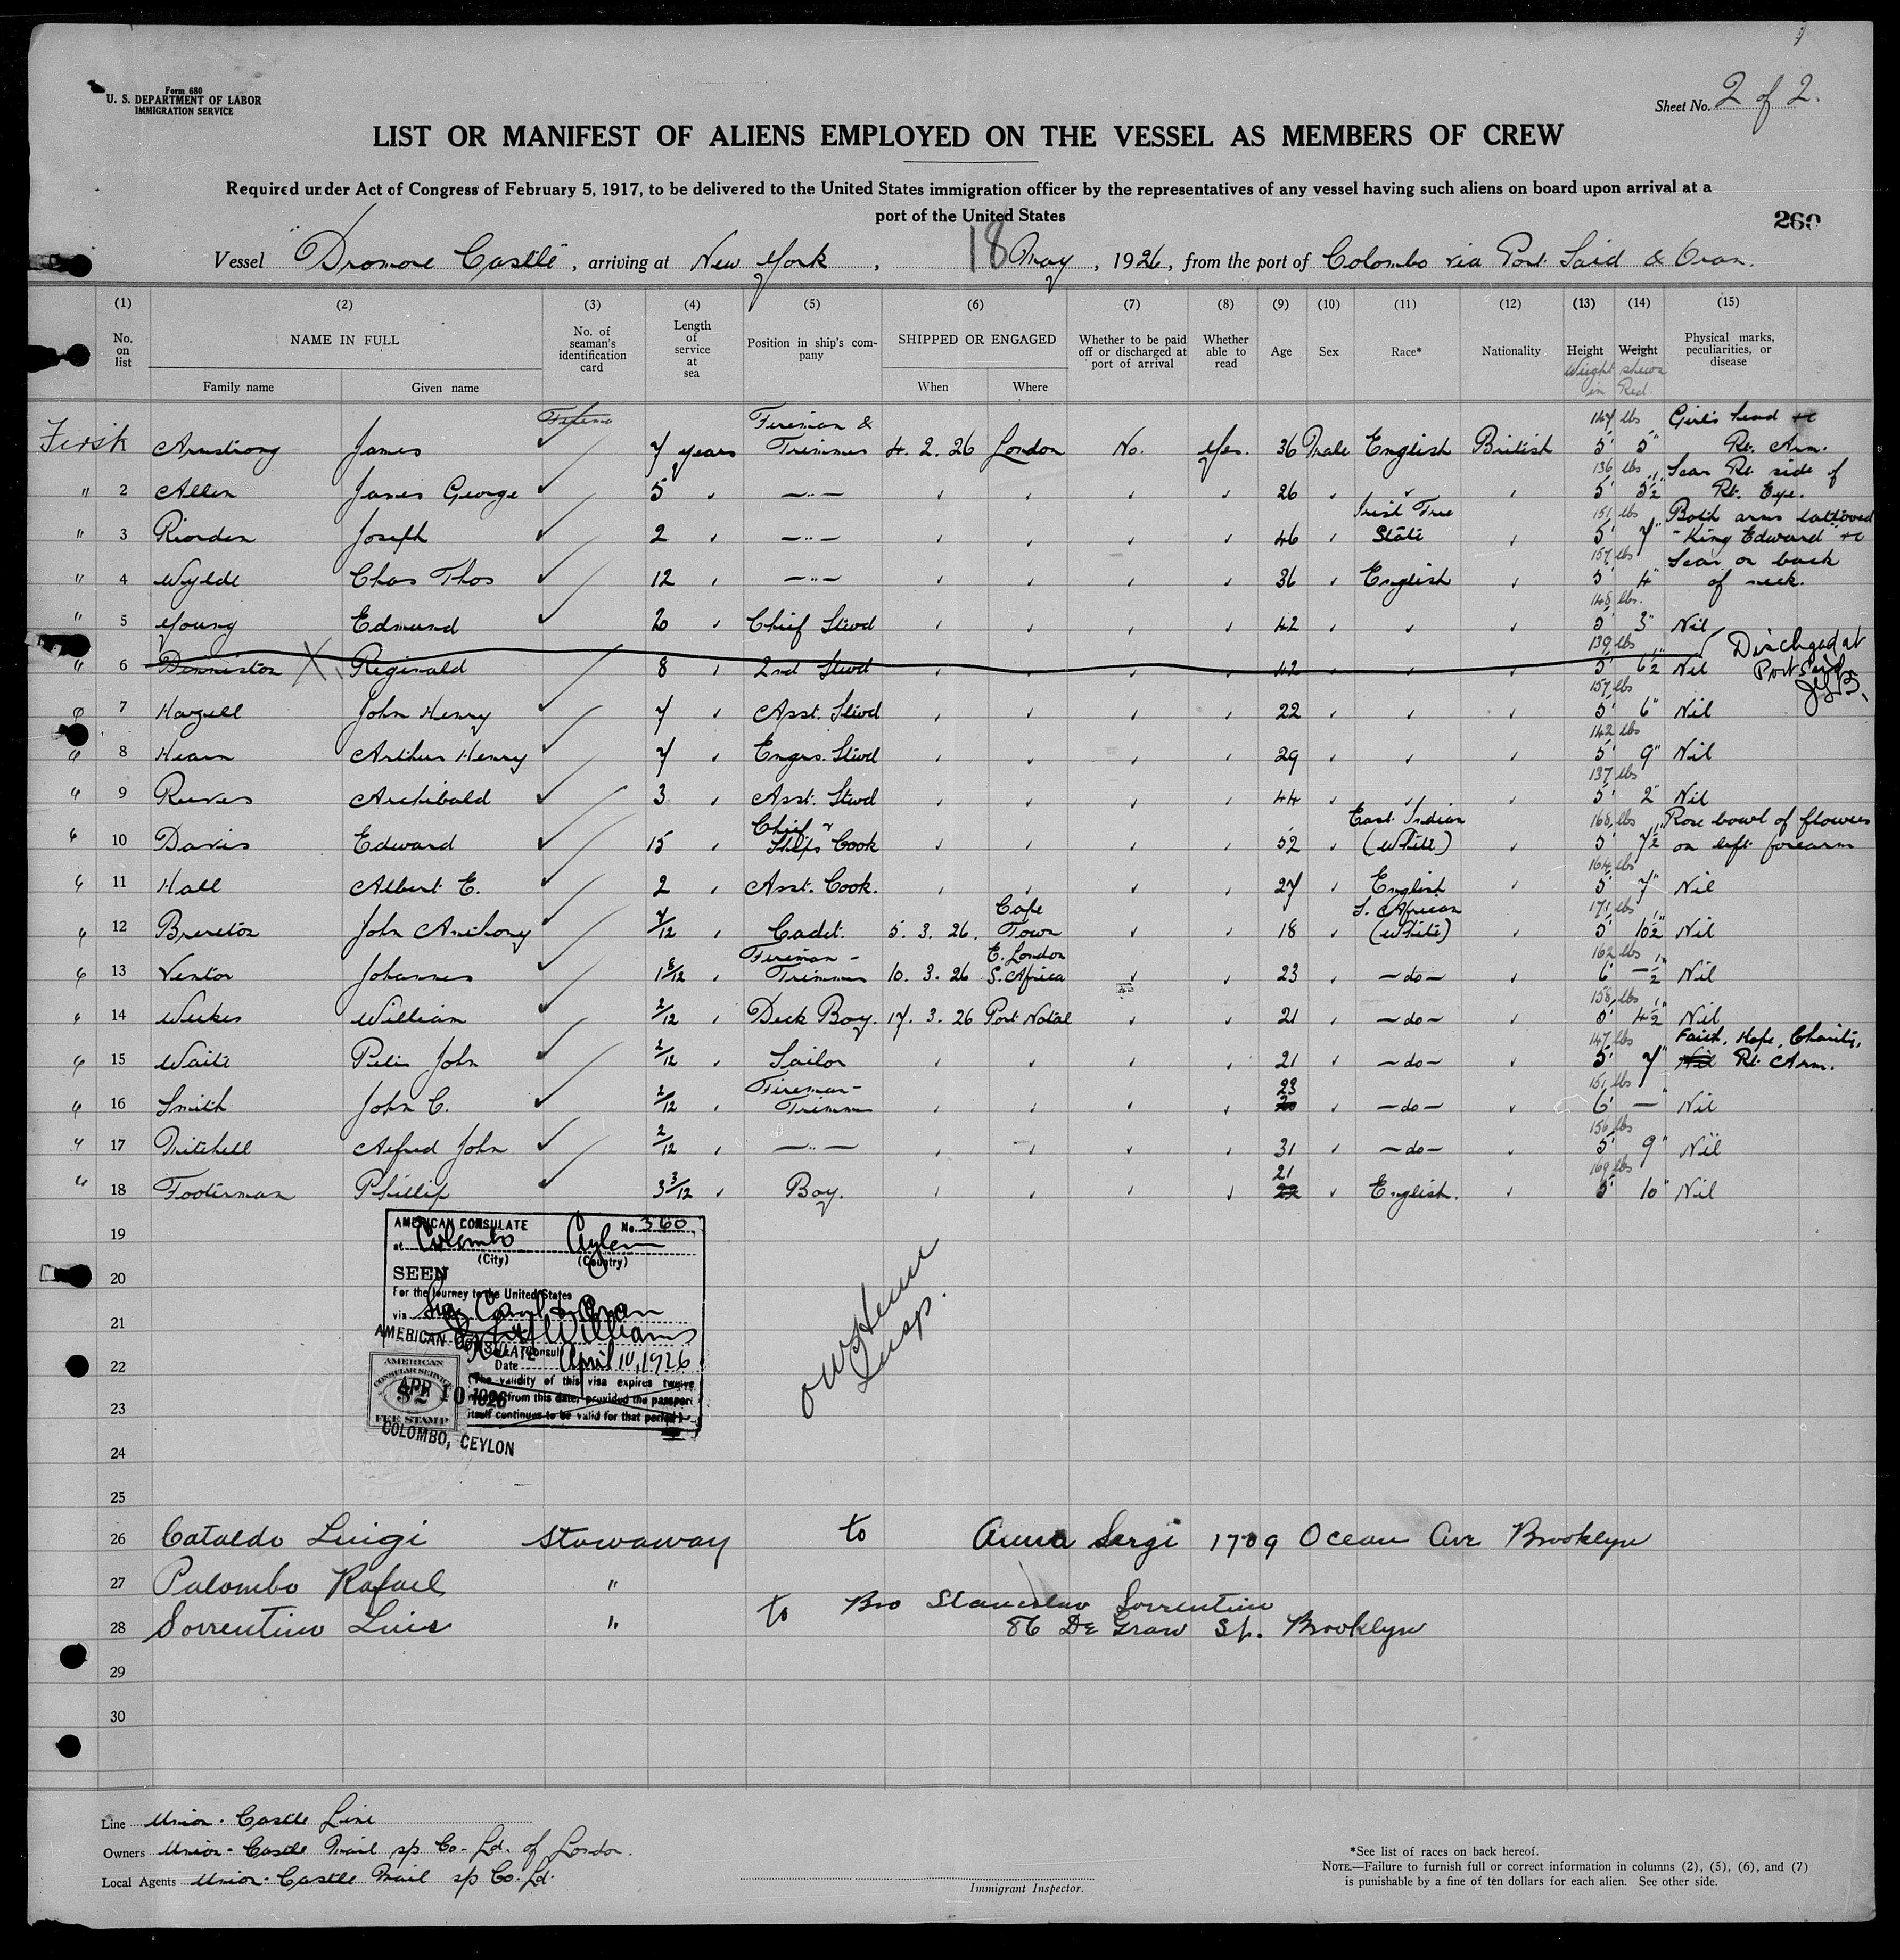 Form 680
U. S. DEPARTMENT OF LABOR
IMMIGRATION SERVICE
Sheet No. 2 of 2.
LIST OR MANIFEST OF ALIENS EMPLOYED ON THE VESSEL AS MEMBERS OF CREW
Required under Act of Congress of February 5, 1917, to be delivered to the United States immigration officer by the representatives of any vessel having such aliens on board upon arrival at a
port of the United States
260
Vessel "Dromore Castle", arriving at New York, 18 May, 1926, from the port of Colombo via Port Said & Oran.
(1) (2) (3) (4) (5) (6) (7) (8) (9) (10) (11) (12) (13) (14) (15)
No. on list NAME IN FULL No. of seaman's identification card Length of service at sea Position in ship's company SHIPPED OR ENGAGED Whether to be paid off or discharged at port of arrival Whether able to read Age Sex Race* Nationality Height Weight Physical marks, peculiarities, or disease
Family name Given name When Where Weight shewn in Red.
First Armstrong James 7 years Fireman & Trimmer 4. 2. 26 London No. Yes. 36 Male English British 147 lbs 5' 5" Girls head &c Rt. Arm.
" 2 Allen James George 5 —"— 26 136 lbs 5' 5½" Scar Rt. side of Rt. Eye.
" 3 Riorden Joseph 2 —"— 46 Irish Free State 151 lbs 5' 7" Both arms tattooed - King Edward &c
" 4 Wylde Chas Thos 12 —"— 36 English 157 lbs 5' 4" Scar on back of neck.
" 5 Young Edmund 20 Chief Stwd 42 148 lbs. 5' 3" Nil
" 6 Denniston X Reginald 8 2nd Stwd 42 139 lbs 5' 6½" Nil Dischgad at Port Said
7 Hazell John Henry 7 Asst. Stwd 22 157 lbs 5' 6" Nil
" 8 Hearn Arthur Henry 7 Engrs. Stwd 29 142 lbs 5' 9" Nil
" 9 Reeves Archibald 3 Asst. Stwd 44 137 lbs 5' 2" Nil
" 10 Davis Edward 15 Chief & Ships Cook 52 East Indian (White) 168 lbs 5' 7½" Rose bowl of flowers on left forearm
" 11 Hall Albert E. 2 Asst. Cook. 27 English 164 lbs 5' 7" Nil
" 12 Brereton John Anthony 7/12 Cadet. 5. 3. 26. Cape Town 18 S. African (White) 171 lbs 5' 10½" Nil
" 13 Ventor Johannes 1 8/12 Fireman - Trimmer 10. 3. 26 E. London S. Africa 23 —do— 162 lbs 6' —½" Nil
" 14 Weekes William 2/12 Deck Boy. 17. 3. 26 Port Natal 21 —do— 158 lbs 5' 4½" Nil
" 15 Waite Peter John 2/12 Sailor 21 —do— 147 lbs 5' 7" Nil Faith, Hope, Charity, Rt. Arm.
" 16 Smith John C. 2/12 Fireman - Trimmer 23 —do— 151 lbs 6' — " Nil
" 17 Mitchell Alfred John 2/12 —"— 31 —do— 156 lbs 5' 9" Nil
" 18 Footerman Phillip 3 3/12 Boy. 21 22 English. 169 lbs 5' 10" Nil
19
AMERICAN CONSULATE No. 360
at Colombo Ceylon
(City) (Country)
20
SEEN
For the journey to the United States
via Suez Canal & Oran
21
AMERICAN CONSULATE
22
Date April 10, 1926
The validity of this visa expires twelve
months from this date, provided the passport
itself continues to be valid for that period.
AMERICAN
CONSULAR SERVICE
$2
FEE STAMP
APR 10 1926
COLOMBO, CEYLON
Insp.
23
24
25
26 Cataldo Luigi Stowaway to Anna Sergi 1709 Ocean Ave Brooklyn
27 Palombo Rafael "
28 Sorrentino Luis " to Bro Stanislav Sorrentino
86 De Graw St. Brooklyn
29
30
Line Union-Castle Line
Owners Union-Castle Mail s/p Co. Ld. of London.
Local Agents Union-Castle Mail s/p Co. Ld.
Immigrant Inspector.
*See list of races on back hereof.
NOTE.—Failure to furnish full or correct information in columns (2), (5), (6), and (7)
is punishable by a fine of ten dollars for each alien. See other side.